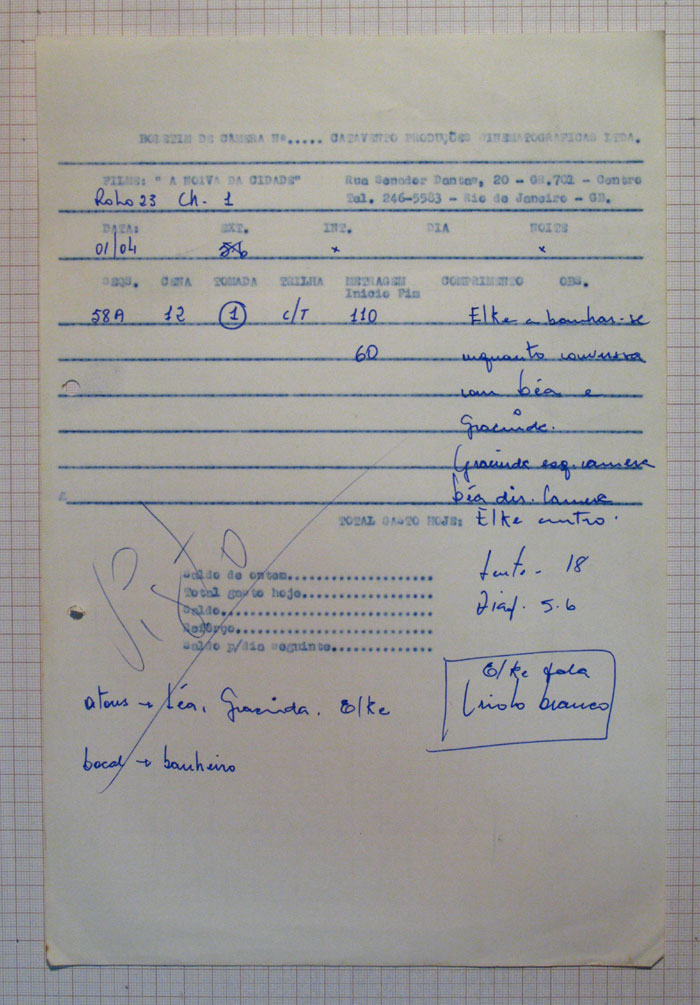 BOLETIM DE CÂMERA Nº..... CATAVENTO PRODUÇÕES CINEMATOGRAFICAS LTDA.
FILME: " A NOIVA DA CIDADE" Rua Senador Dantas, 20 - GR.701 - Centro
Rolo 23 Ch. 1 Tel. 246-5583 - Rio de Janeiro - GB.
DATA: EXT. INT. DIA NOITE
01/04 x x
SEQS. CENA TOMADA TRILHA METRAGEM COMPRIMENTO OBS.
Inicio Fim
58A 12 1 c/T 110 Elke a banhar-se
60 enquanto conversa
com Léa e
Gracinda.
Gracinda esq. camera
Léa dir. Camera
TOTAL GASTO HOJE: Elke centro.
Visto
Saldo de ontem........................
Total gasto hoje......................
Saldo.................................
Refôrço...............................
Saldo p/dia seguinte..................
Lente - 18
Diaf. 5.6
atores → Léa, Gracinda. Elke
local → banheiro
Elke fala
branco